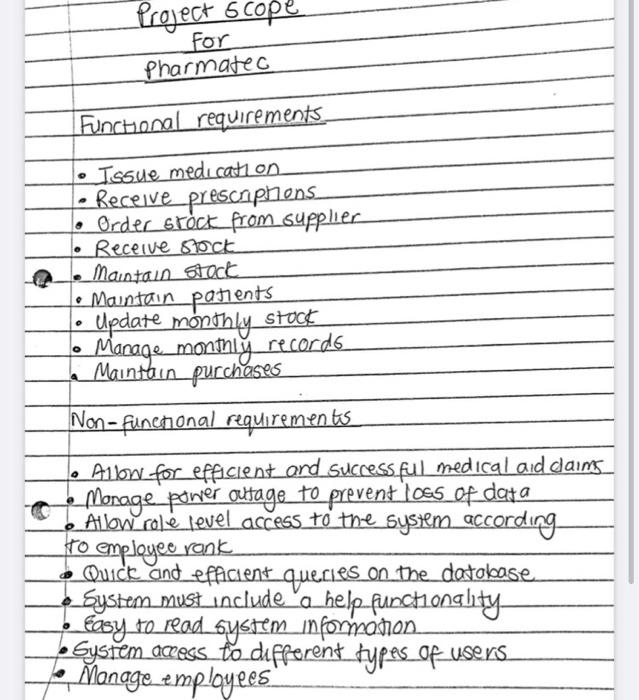 Project Scope
For
Pharmatec
Functional requirements
• Issue medication
• Receive prescriptions
• Order stock from supplier
• Receive stock
• Maintain stock
• Maintain patients
• Update monthly stock
• Manage monthly records
• Maintain purchases
Non-functional requirements
• Allow for efficient and successful medical aid claims
• Manage power outage to prevent loss of data
• Allow role level access to the system according
to employee rank
• Quick and efficient queries on the database
• System must include a help functionality
• Easy to read system information
• System access to different types of users
• Manage employees